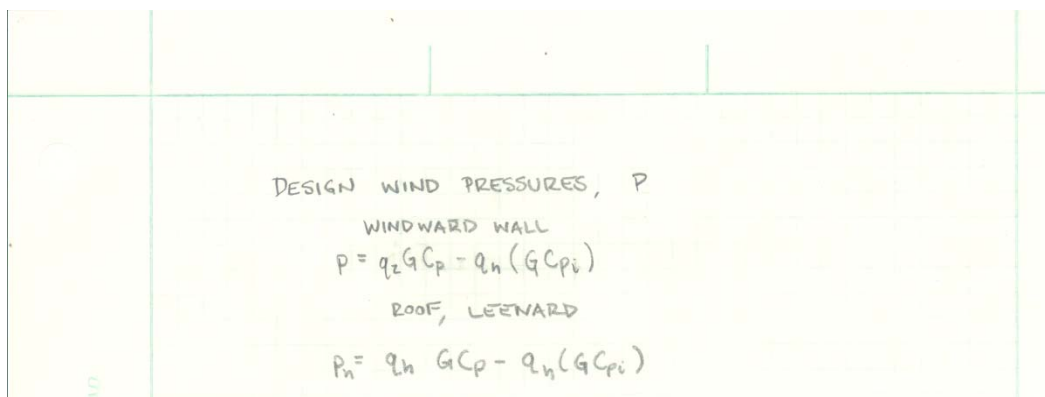 DESIGN WIND PRESSURES, P
WINDWARD WALL
P = qzGCp - qh(GCpi)
ROOF, LEEWARD
Ph = qh GCp - qh(GCpi)